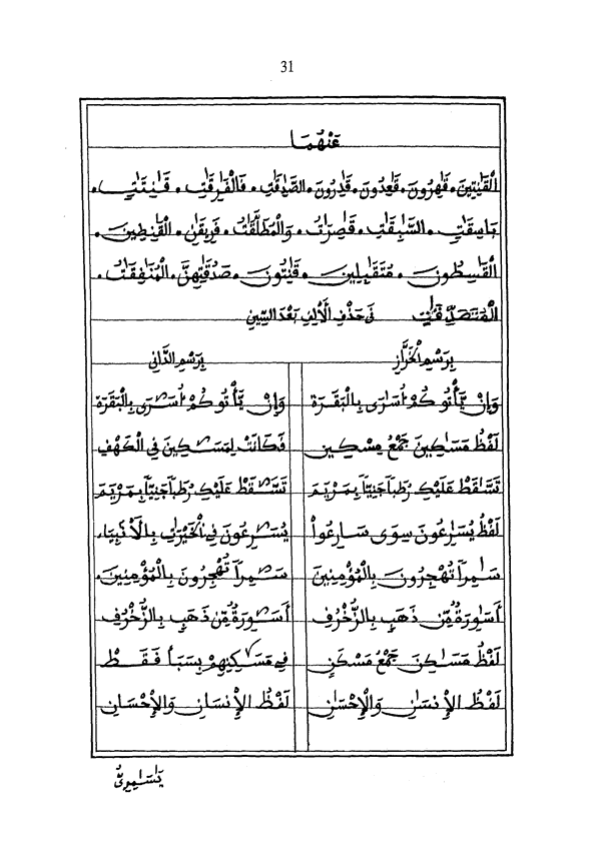 31
عَنْهُمَا
الْقَٰنِتِينَ . قَٰهِرُونَ . قَٰعِدُونَ . قَٰدِرُونَ . الصَّٰدِقَٰتِ . فَالْفَٰرِقَٰتِ . قَٰنِتَٰتٍ .
بَاسِقَٰتٍ . السَّٰبِقَٰتِ . قَٰصِرَٰتُ . وَالْمُطَلَّقَٰتُ . فَرِيقَٰنِ . الْقَٰنِطِينَ .
الْقَٰسِطُونَ . مُتَقَٰبِلِينَ . قَٰنِتُونَ . صَدُقَٰتِهِنَّ . الْمُنَٰفِقَٰتُ .
الْمُتَصَدِّقَٰتِ في حَذْفِ الْأَلِفِ بَعْدَ السِّينِ
بِرَسْمِ الْخَرَّازِ بِرَسْمِ الدَّانِي
وَإِنْ يَّأْتُوكُمْ أُسَٰرَى بِالْبَقَرَةِ وَإِنْ يَّأْتُوكُمْ أُسَٰرَى بِالْبَقَرَةِ
لَفْظُ مَسَٰكِينَ جَمْعُ مِسْكِينٍ فَكَانَتْ لِمَسَٰكِينَ فِي الْكَهْفِ
تَسَّٰقَطْ عَلَيْكِ رُطَباً جَنِيّاً بِمَرْيَمَ تَسَّٰقَطْ عَلَيْكِ رُطَباً جَنِيّاً بِمَرْيَمَ
لَفْظُ يُسَٰرِعُونَ سِوَى سَارِعُواْ يُسَٰرِعُونَ فِي الْخَيْرَٰتِ بِالْأَنْبِيَاءِ
سَٰمِراً تُهْجِرُونَ بِالْمُؤْمِنِينَ سَٰمِراً تُهْجِرُونَ بِالْمُؤْمِنِينَ .
أَسَٰوِرَةٌ مِّن ذَهَبٍ بِالزُّخْرُفِ أَسَٰوِرَةٌ مِّن ذَهَبٍ بِالزُّخْرُفِ
لَفْظُ مَسَٰكِنَ جَمْعُ مَسْكَنٍ فِي مَسْكَنِهِمْ بِسَبَأٍ فَقَطْ
لَفْظُ الْإِنسَٰنِ وَالْإِحْسَٰنِ لَفْظُ الْإِنْسَانِ وَالْإِحْسَانِ
يَٰسَٰمِرِيُّ